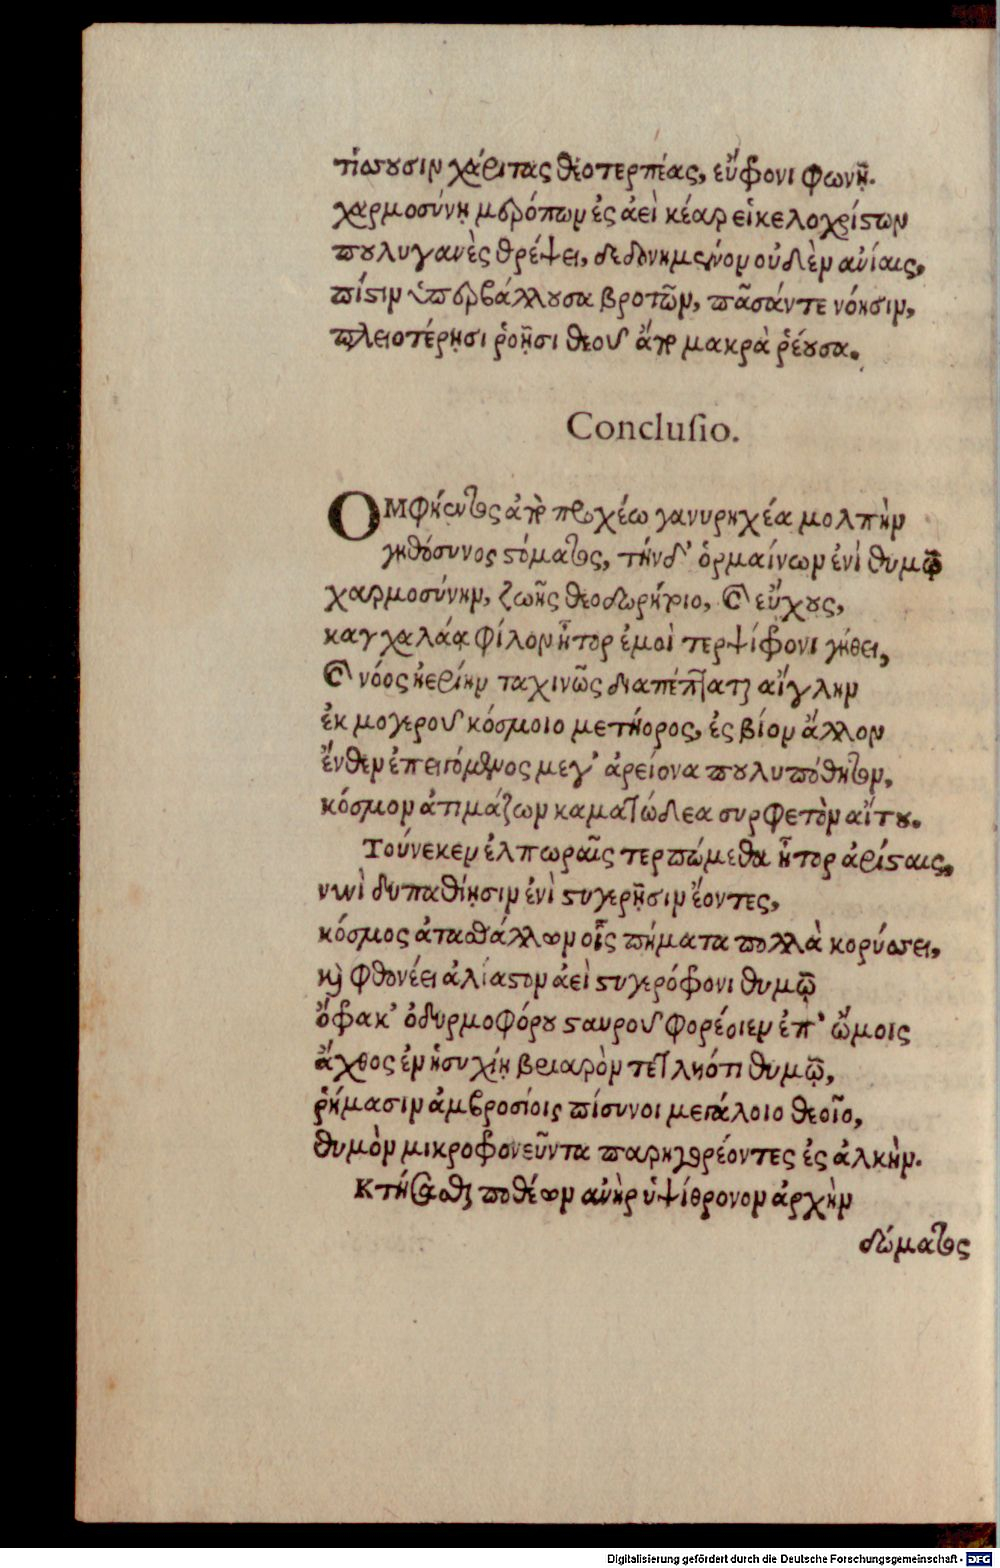 τίουσιν χάριτας θεοτερπέας, εὔφρονι φωνῇ.
χαρμοσύνη μερόπων ἐς ἀεὶ κέαρ εἰκελοχρίστων
πουλυγανὲς θρέψει, δεδονημένον οὐδὲν ἀνίαις,
πίστιν ὑπερβάλλουσα βροτῶν, πᾶσάν τε νόησιν,
πλειοτέρῃσι ῥοῇσι θεοῦ ἄπο μακρὰ ῥέουσα.
Conclusio.
ΟΜφήεντος ἀπὸ προχέω γανυρηχέα μολπὴν
γηθόσυνος στόματος, τήνδ' ὁρμαίνων ἐνὶ θυμῷ
χαρμοσύνην, ζωῆς θεοδωρήτοιο, καὶ εὔχους,
καγχαλάᾳ φίλον ἦτορ ἐμοὶ τερψίφρονι γήθει,
καὶ νόος ἠερίην ταχινῶς διαπέπταται αἴγλην
ἐκ μογεροῦ κόσμοιο μετήορος, ἐς βίον ἄλλον
ἔνθεν ἐπειγόμενος μέγ' ἀρείονα πουλυπόθητον,
κόσμον ἀτιμάζων καματώδεα συρφετὸν αἴτου.
Τούνεκεν ἐλπωραῖς τερπώμεθα ἦτορ ἀρίσταις,
νωὶ δυπαθίῃσιν ἐνὶ στυγερῇσιν ἔοντες,
κόσμος ἀτασθάλλων οἷς πήματα πολλὰ κορύσσει,
καὶ φθονέει ἀλίαστον ἀεὶ στυγερόφρονι θυμῷ
ὄφακ' ὀδυρμοφόρου σταυροῦ φορέοιεν ἐπ' ὤμοις
ἄχθος ἐν ἡσυχίῃ βριαρὸν τετληότι θυμῷ,
ῥήμασιν ἀμβροσίοις πίσυνοι μεγάλοιο θεοῖο,
θυμὸν μικροφρονεῦντα παρηγορέοντες ἐς ἀλκὴν.
Κτήσασθαι ποθέων ἀνὴρ ὑψίθρονον ἀρχὴν
δώματος
Digitalisierung gefördert durch die Deutsche Forschungsgemeinschaft - DFG